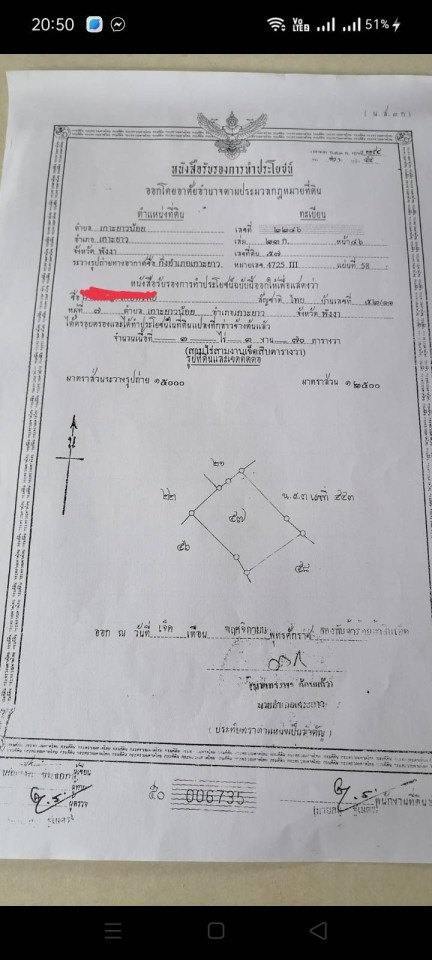 20:50
Vo LTE2
51%
( น.ส.๓ ก. )
หนังสือรับรองการทำประโยชน์
ออกโดยอาศัยอำนาจตามประมวลกฎหมายที่ดิน
ตำแหน่งที่ดิน ทะเบียน
ตำบล เกาะยาวน้อย เลขที่ ๒๒๔๖
อำเภอ เกาะยาว เล่ม ๒๓ ก. หน้า ๔๖
จังหวัด พังงา เลขที่ดิน ๕๗
ระวางรูปถ่ายทางอากาศชื่อ กิ่งอำเภอเกาะยาว หมายเลข 4725 III แผ่นที่ 58
หนังสือรับรองการทำประโยชน์ฉบับนี้ออกให้เพื่อแสดงว่า
ชื่อ สัญชาติ ไทย บ้านเลขที่
หมู่ที่ ๗ ตำบล เกาะยาวน้อย อำเภอเกาะยาว จังหวัด พังงา
ได้ครอบครองและได้ทำประโยชน์ในที่ดินแปลงที่กล่าวข้างต้นแล้ว
จำนวนเนื้อที่ ๓ ไร่ ๓ งาน ๗๐ ตารางวา
(สามไร่สามงานเจ็ดสิบตารางวา)
รูปที่ดินและเขตติดต่อ
มาตราส่วนระวางรูปถ่าย ๑:๕๐๐๐ มาตราส่วน ๑:๒๕๐๐
๒๑
๒๒
น.ส.๓ เลขที่ ๕๕๓
๕๗
๕๖
๕๘
ออก ณ วันที่ เจ็ด เดือน พฤศจิกายน พุทธศักราช
นายอำเภอเกาะยาว
( ประทับตราตำแหน่งเป็นสำคัญ )
ผู้เขียน
ผู้ตรวจ
๕๐ 006735